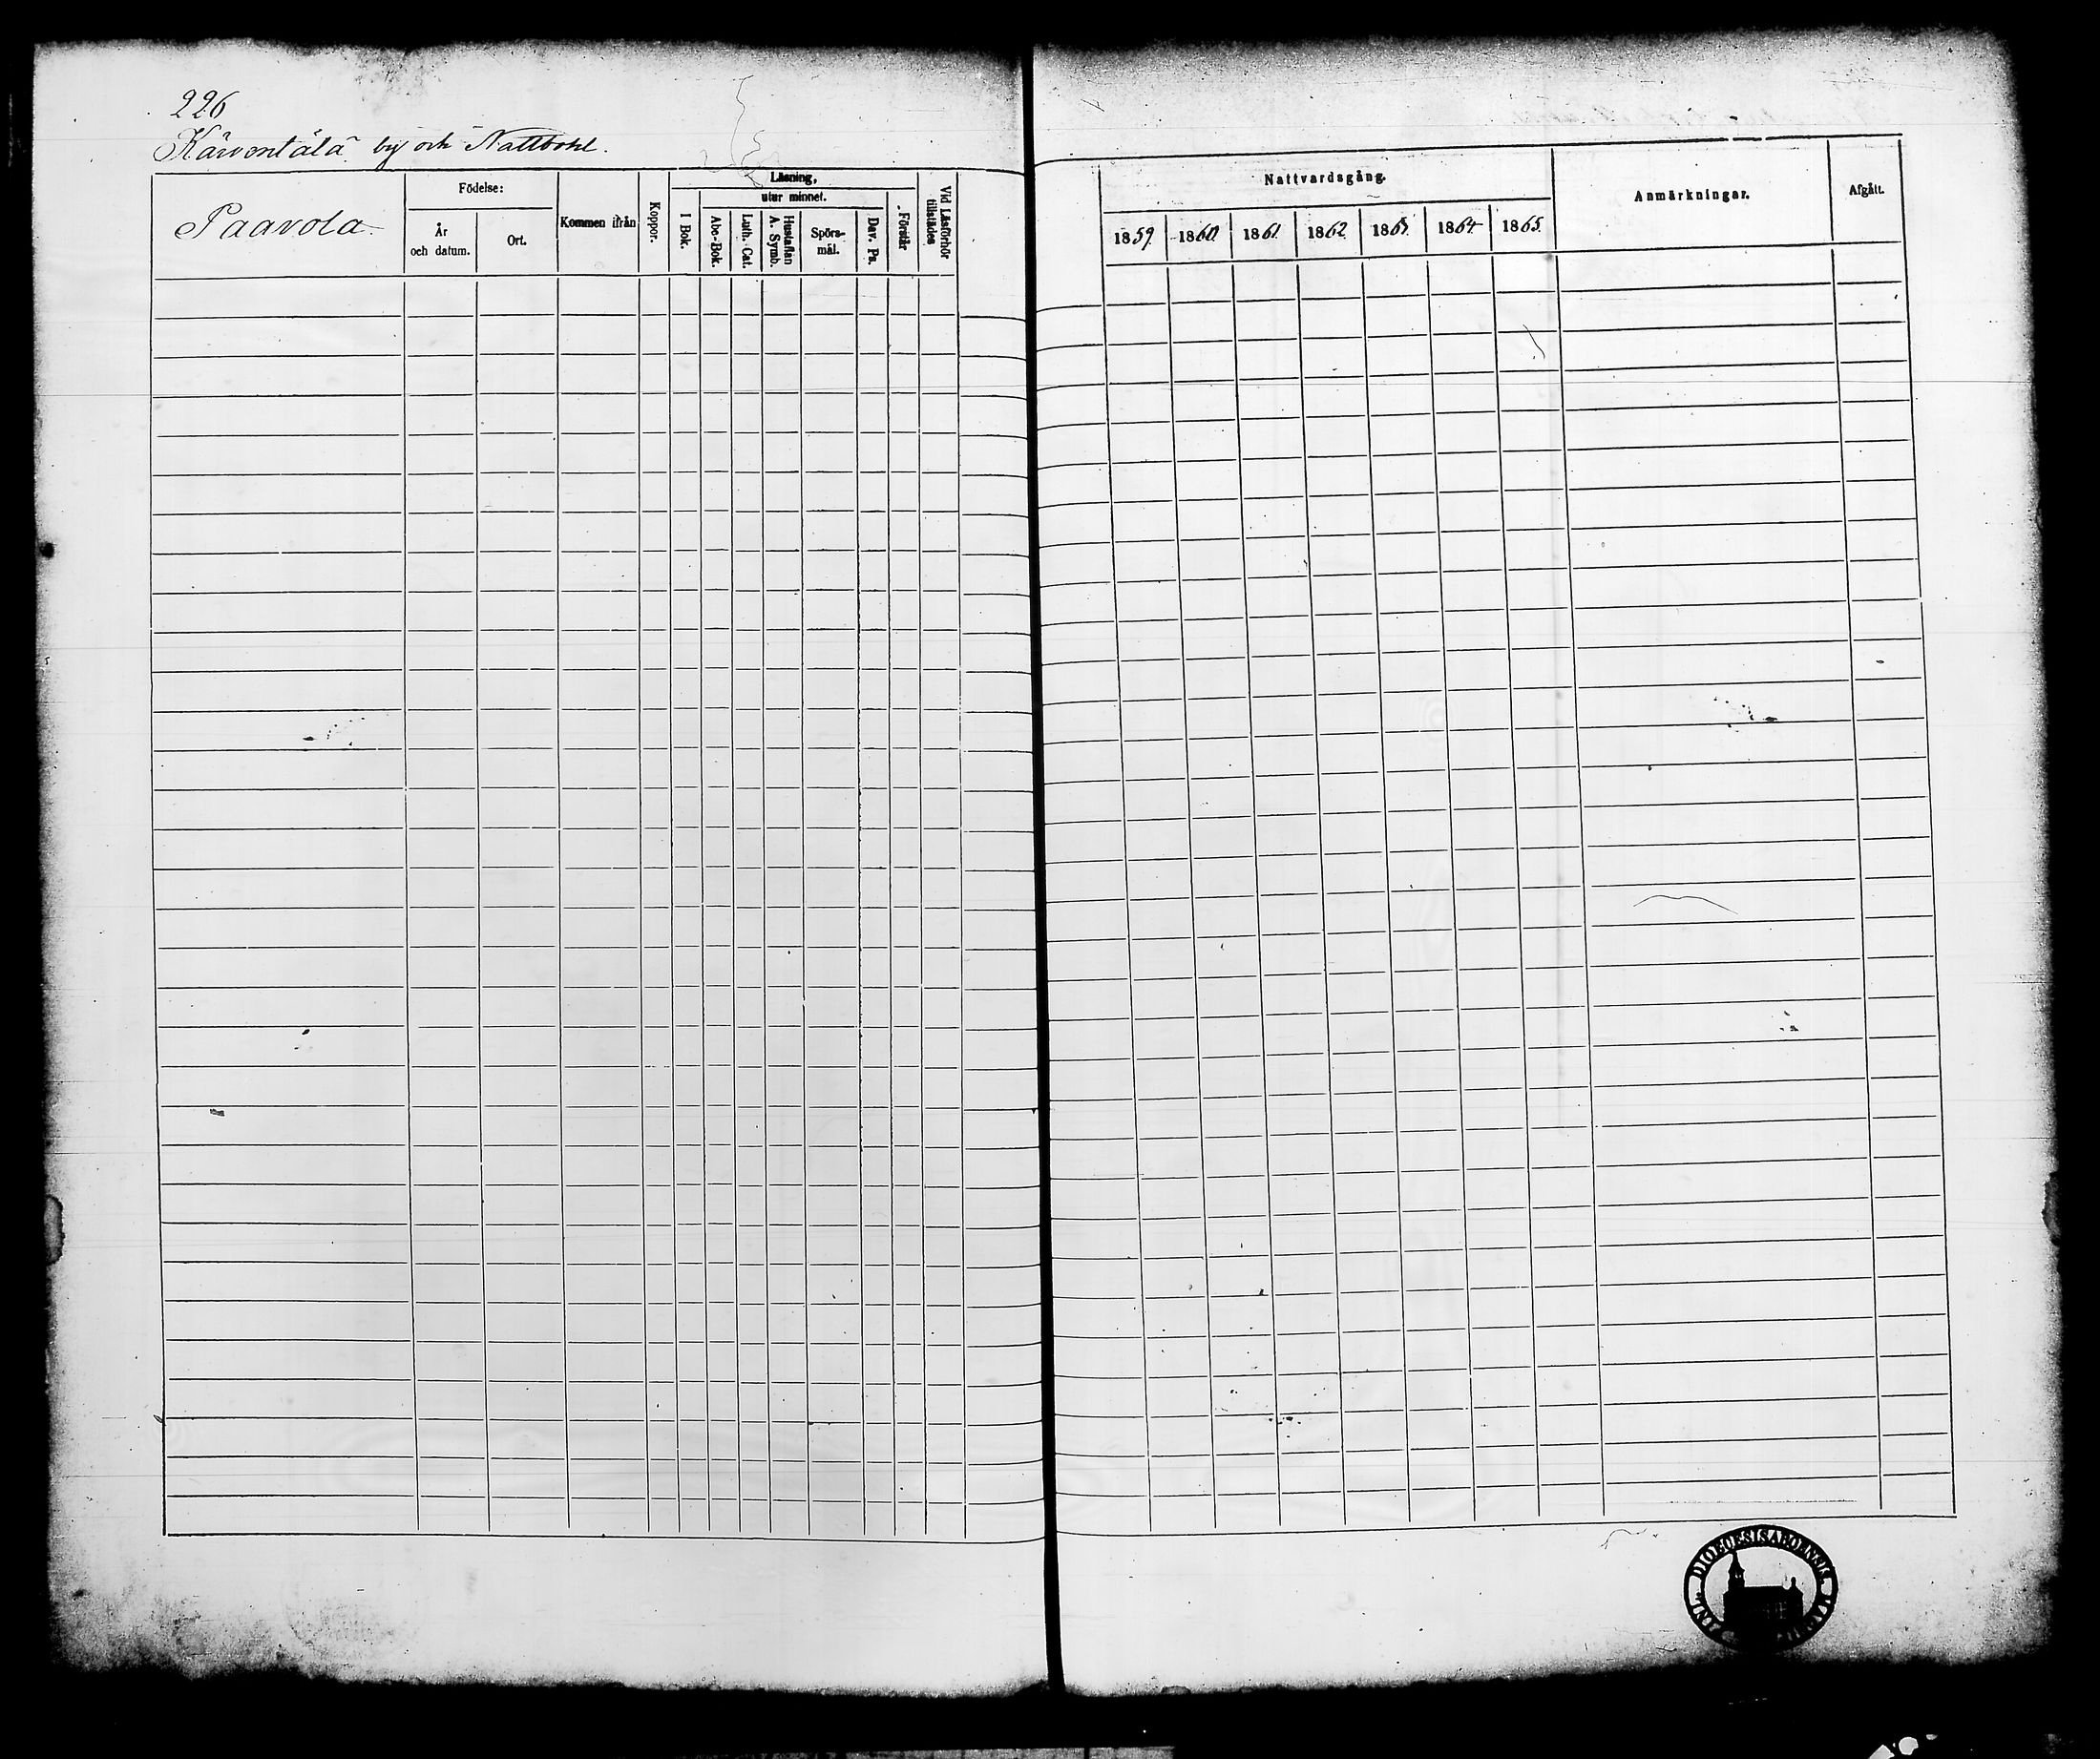 226
Kärventälä by och Nattbohl.
Paavola.
Födelse:
År och datum.
Ort.
Kommen ifrån
Koppor.
Läsning,
utur minnet.
I Bok.
Abc-Bok.
Luth. Cat.
Hustaflan A. Symb.
Spörs-mål.
Dav. Ps.
Förstår
Vid Läsförhör tillstädes
Nattvardsgång.
1859. 1860. 1861. 1862. 1863. 1864 1865.
Anmärkningar.
Afgått.
DIOECESIS ABOENSIS